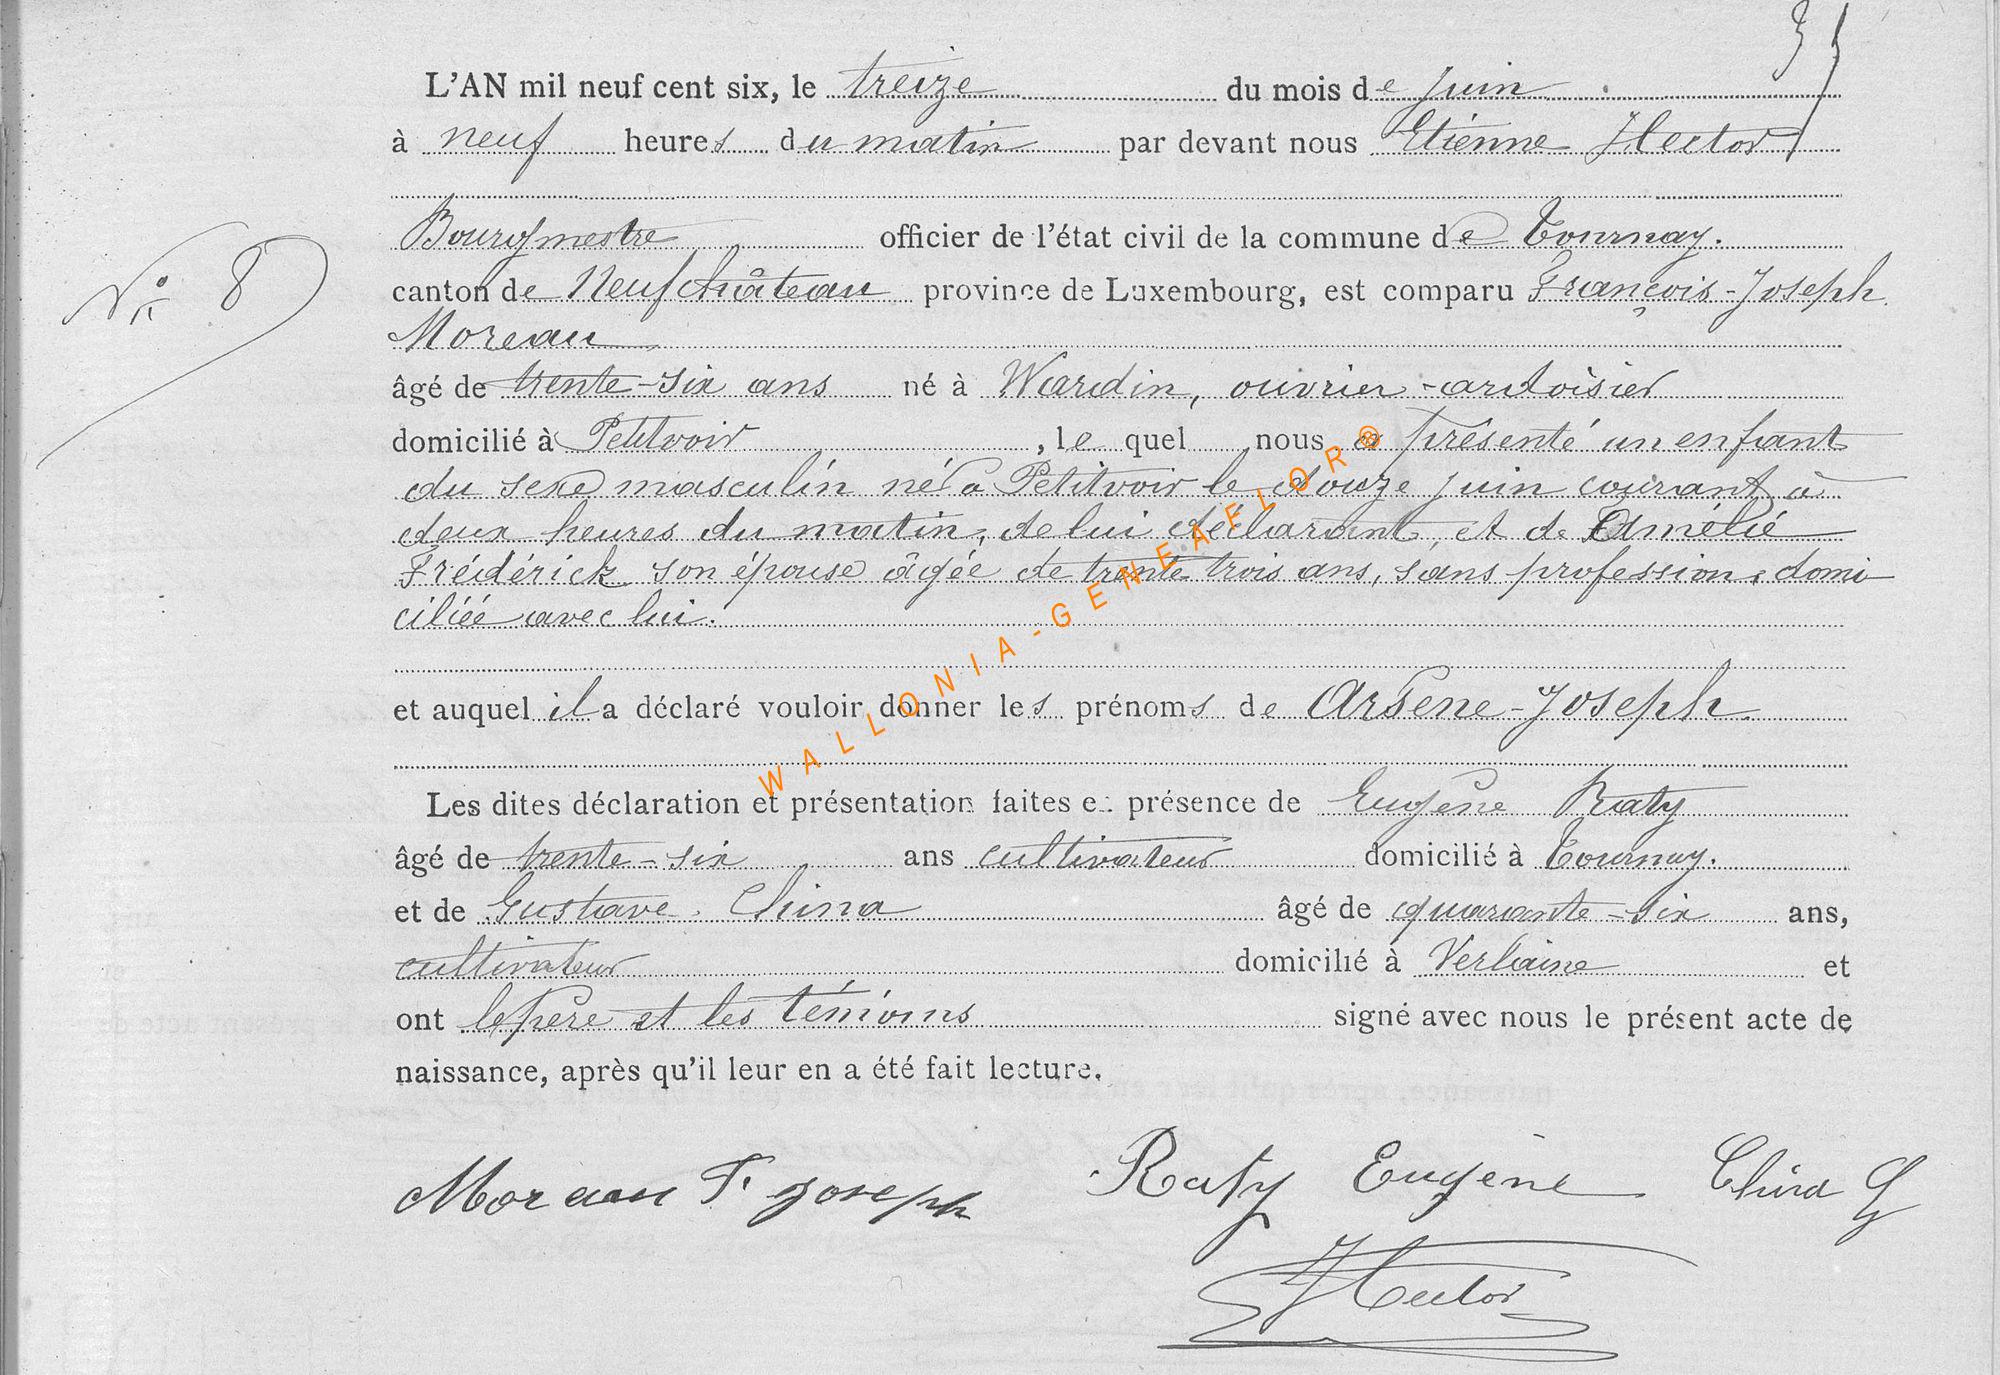 L'AN mil neuf cent six, le treize du mois de juin
à neuf heures du matin par devant nous Etienne Hector
Bourgmestre officier de l'état civil de la commune de Tournay.
N° 8
canton de Neufchâteau province de Luxembourg, est comparu François-Joseph
Moreau
âgé de trente-six ans né à Wardin, ouvrier-ardoisier
domicilié à Petitvoir, le quel nous a présenté un enfant
du sexe masculin né à Petitvoir le douze juin courant à
deux heures du matin, de lui déclarant, et de Amélie
Frédérick son épouse âgée de trente trois ans, sans profession, domi
ciliée avec lui.
et auquel il a déclaré vouloir donner les prénoms de Arsène-Joseph
Les dites déclaration et présentation faites en présence de Eugène Raty
âgé de trente-six ans cultivateur domicilié à Tournay.
et de Gustave China âgé de quarante-six ans,
cultivateur domicilié à Verlaine et
ont le père et les témoins signé avec nous le présent acte de
naissance, après qu'il leur en a été fait lecture.
Moreau F. joseph Raty Eugène China G
Hector
WALLONIA-GENEAFLOR®